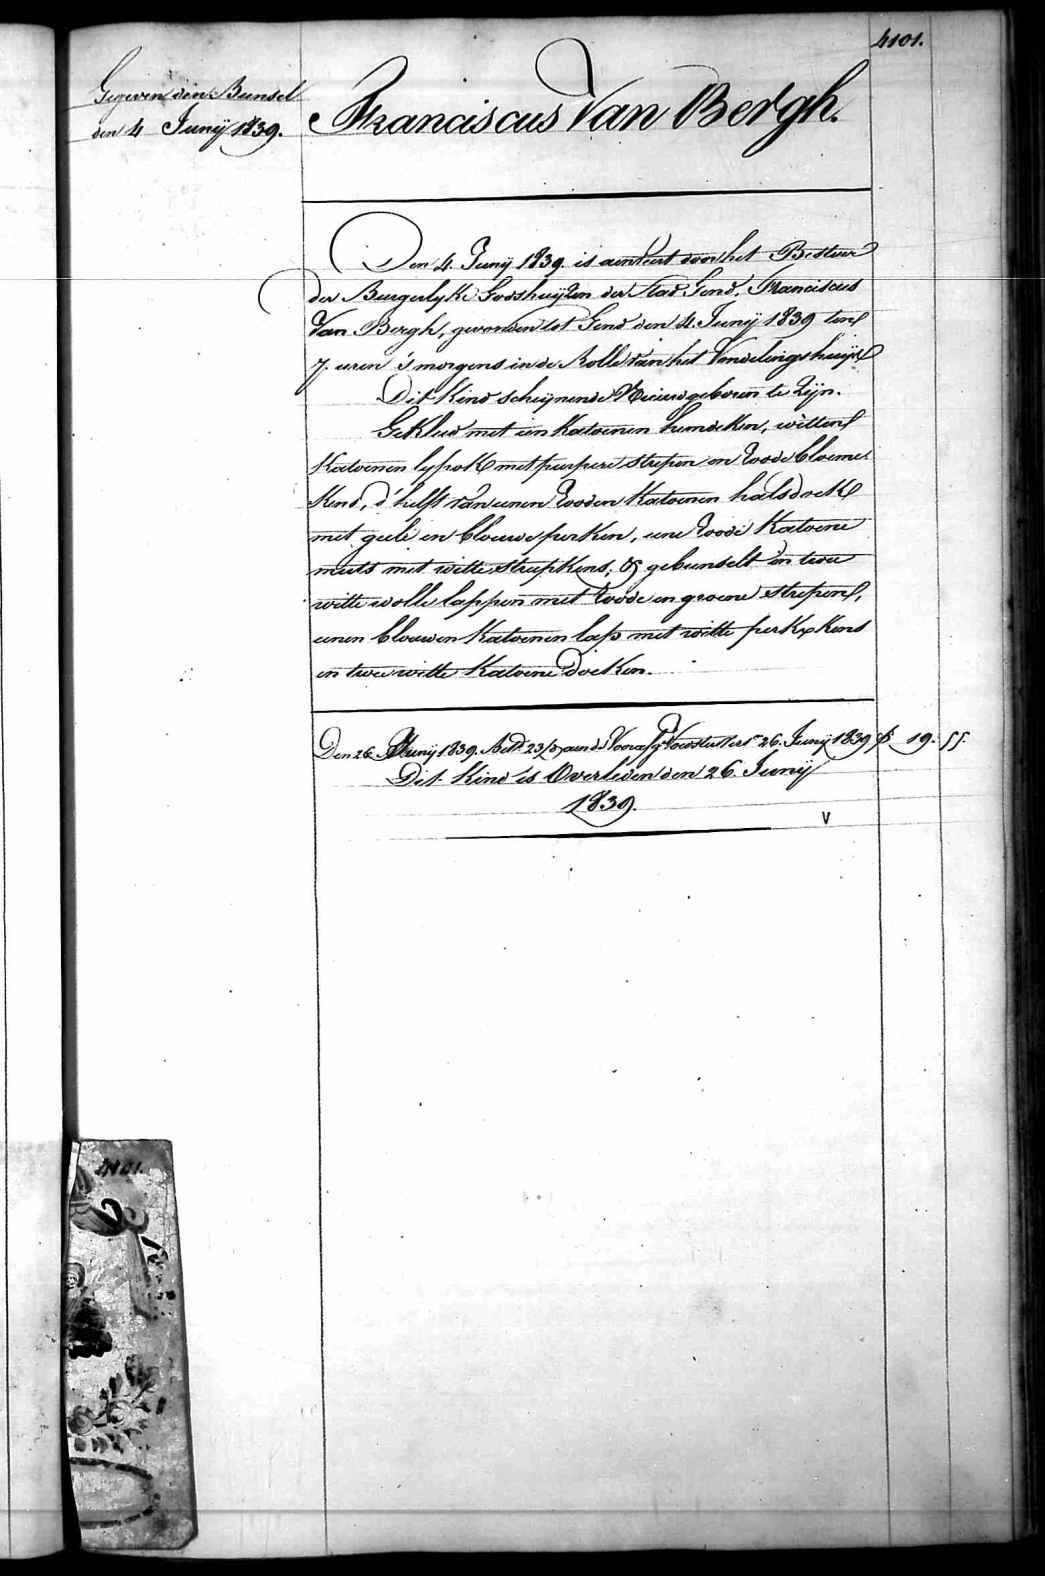 4101.
Gegeven den Bunsel
den 4 Junij 1839.
Franciscus Van Bergh.
Den 4. Junij 1839. is aenveirt door het Bestuer
der Burgerlyke Godshuijzen der Stad Gend, Franciscus
Van Bergh, gevonden tot Gend den 4. Junij 1839 ten
7. uren 's morgens in de Rolle van het Vondelingshuijs
Dit Kind scheijnende Nieuwgeboren te zijn.
Gekleed met een Katoenen hemdeken, witten
Katoenen lypok met purpere strepen en roode bloeme
Kens, d'helft van eenen rooden Katoenen halsdoek
met geele en blouwe perken, eene roode Katoene
muts met witte streepkens; & gebunselt in twee
witte wolle lappen met roode en groene strepen,
eenen blouwen Katoenen lap met witte perkxkens
en twee witte Katoene doeken.
Den 26. Junij 1839. 23/ aen de 26. Junij 1839 f. 19. 55.
Dit Kind is Overleden den 26. Junij
1839.
V
4101.